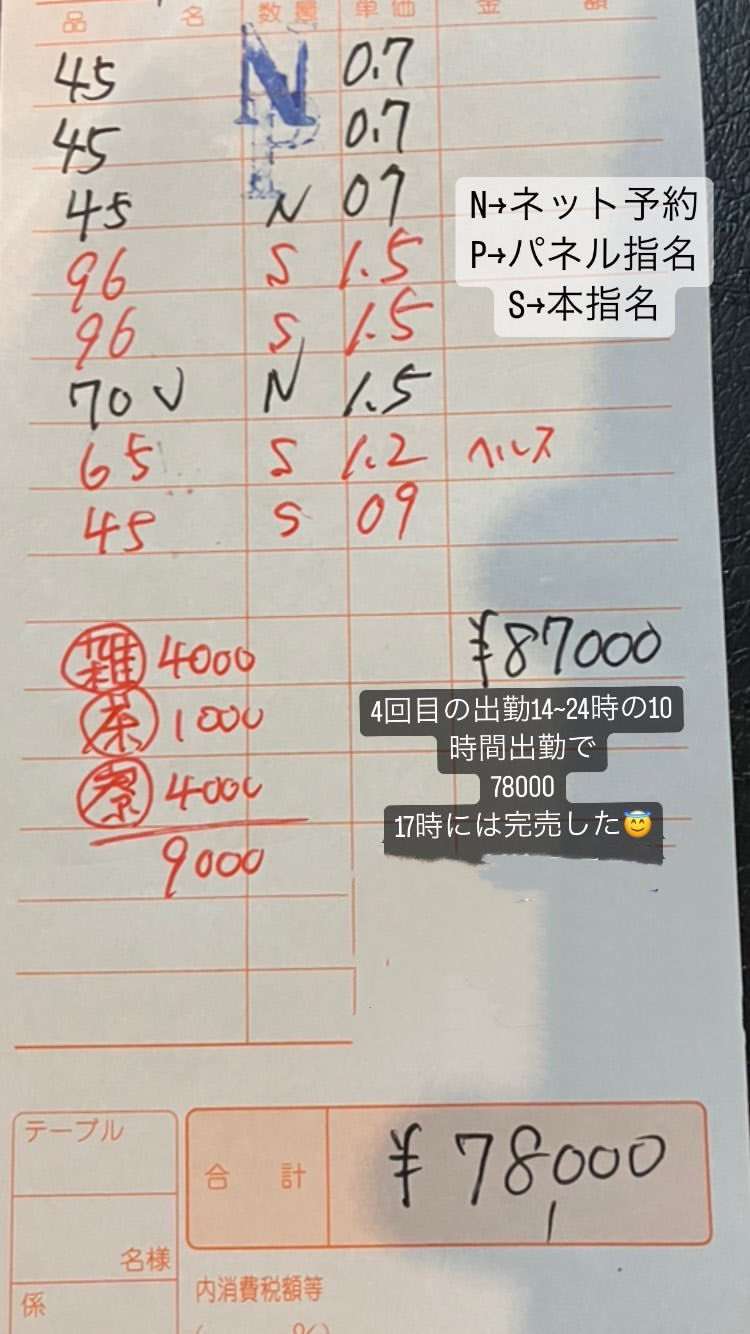 品名 数量 単価 金額
45 N 0.7
45 P 0.7
45 N 07
96 S 1.5
96 S 1.5
70 V N 1.5
65 S 1.2 ヘルス
45 S 09
N→ネット予約
P→パネル指名
S→本指名
¥87000
雑 4000
茶 1000
寮 4000
9000
4回目の出勤14~24時の10
時間出勤で
78000
17時には完売した😇
テーブル
名様
係
合計 ¥78000
内消費税額等
( %)